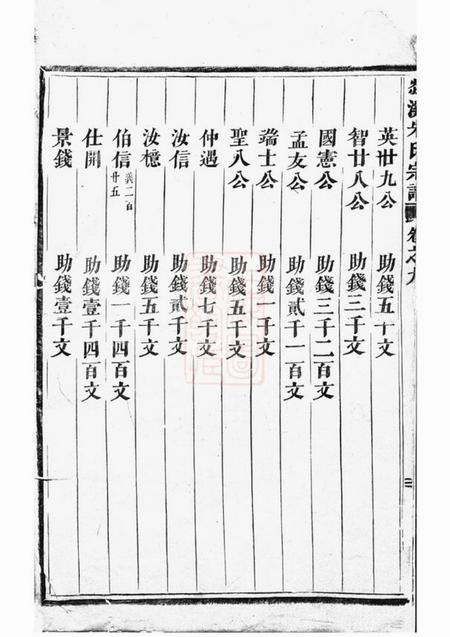 宗譜 卷之九
英丗九公 助錢五十文
智廿八公 助錢三千文
國憲公 助錢三千二百文
孟友公 助錢貳千一百文
瑞士公 助錢一千文
聖八公 助錢五千文
仲遇 助錢七千文
汝信 助錢貳千文
汝檍 助錢五千文
伯信 義二百廿五 助錢一千四百文
仕開 助錢壹千四百文
景錢 助錢壹千文